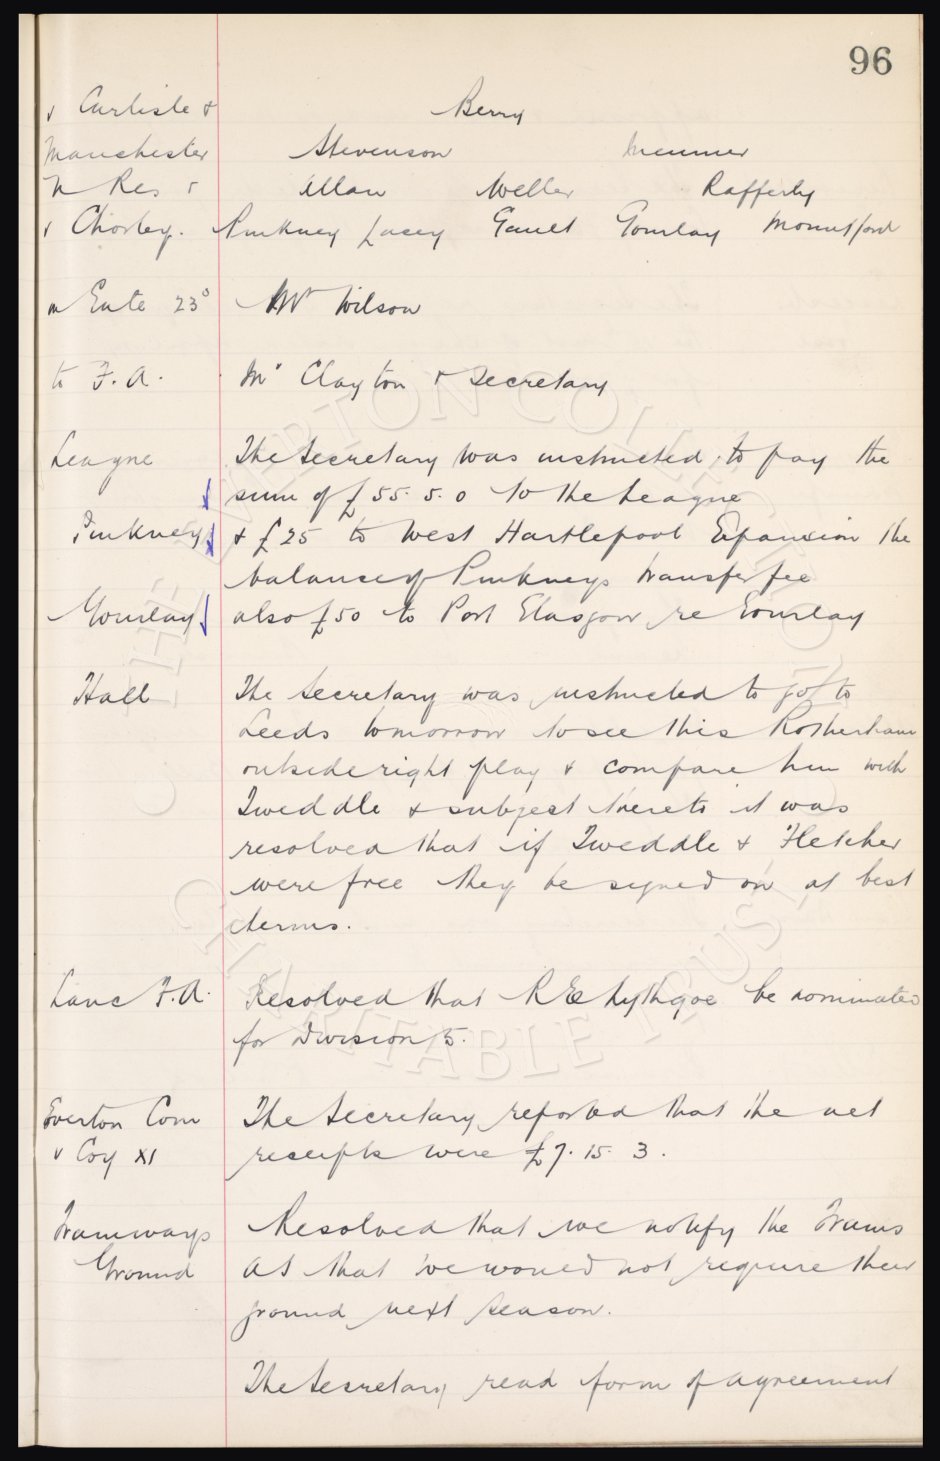 96
v Carlisle & Berry
Manchester Stevenson Meunier
N Res v Allan Weller Rafferty
v Chorley. Pinkney Lacey Gault Gourlay Mountford
m Ente 23° Mr Wilson
to F.A. Mr Clayton & Secretary
League The Secretary was instructed to pay the
sum of £55.5.0 to the League
Pinkney & £25 to West Hartlepool Expansion the
balance of Pinkneys transfer fee
Gourlay also £50 to Port Glasgow re Gourlay
Hall The Secretary was instructed to go to
Leeds tomorrow to see this Rotherham
outside right play & compare him with
Tweddle & subject thereto it was
resolved that if Tweddle & Fletcher
were free they be signed on at best
terms.
Lanc F.A. Resolved that R E Lythgoe be nominated
for Division 5.
Everton Com The Secretary reported that the net
v Coy XI receipts were £7.15.3.
Tramways Resolved that we notify the Trams
Ground AS that we would not require their
ground next season.
The Secretary read form of agreement
THE EVERTON COLLECTION CHARITABLE TRUST